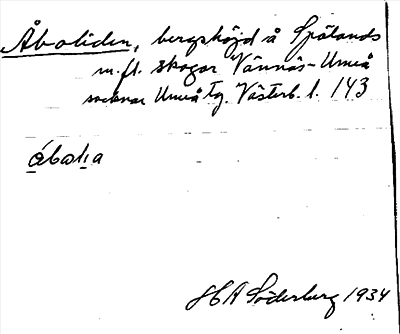 Åboliden, bergshöjd å Spölands
m.fl. skogar Vännäs-Umeå
socknar Umeå Tg. Västerb. l. 143
ábolıa
HA Söderberg 1934